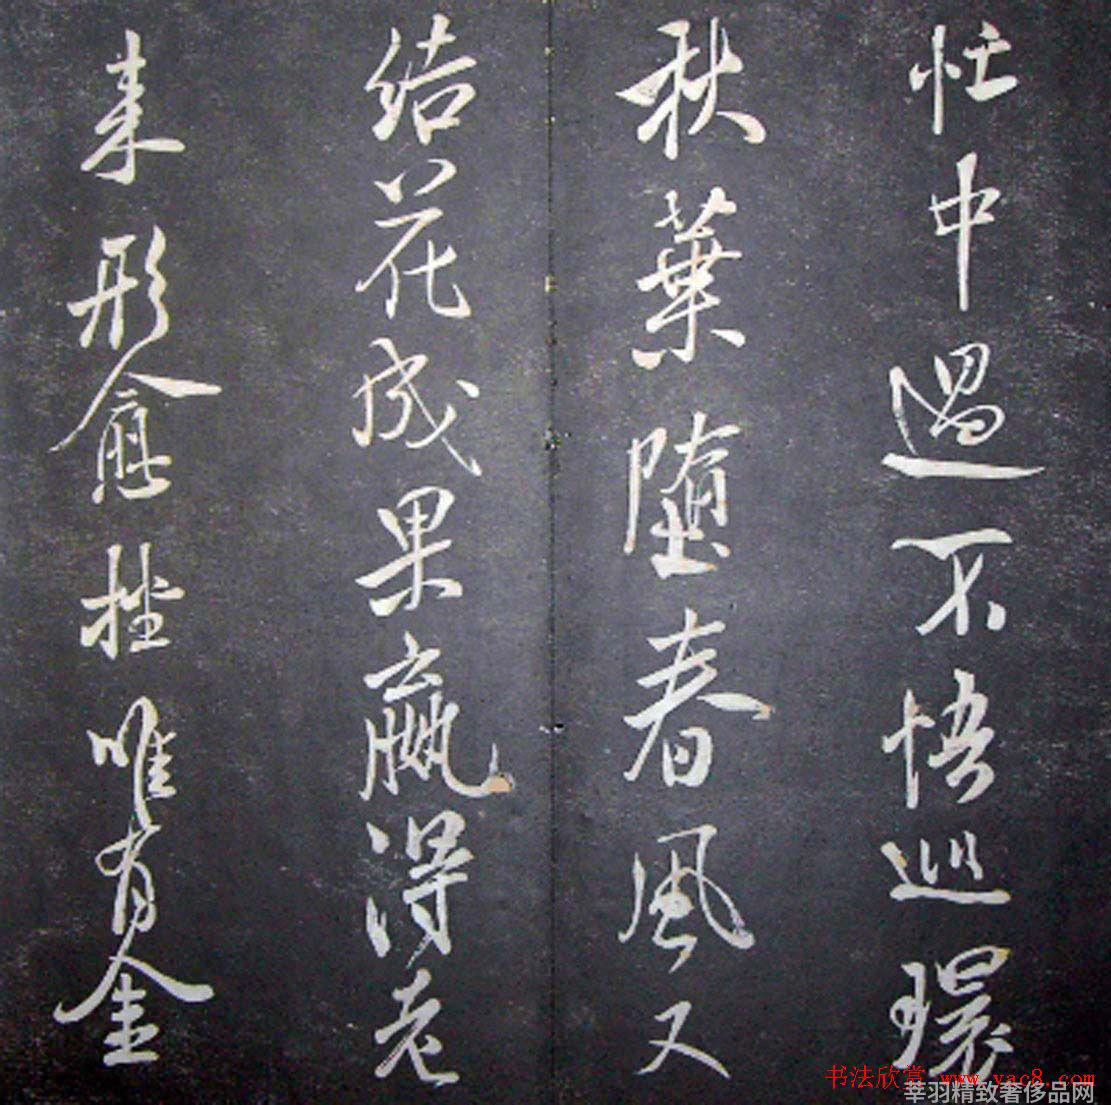 忙中過不悟巡環
秋葉墮春風又
結花成果贏得老
来形愈拙唯有金
书法欣赏 www.yac8.com
莘羽精致奢侈品网